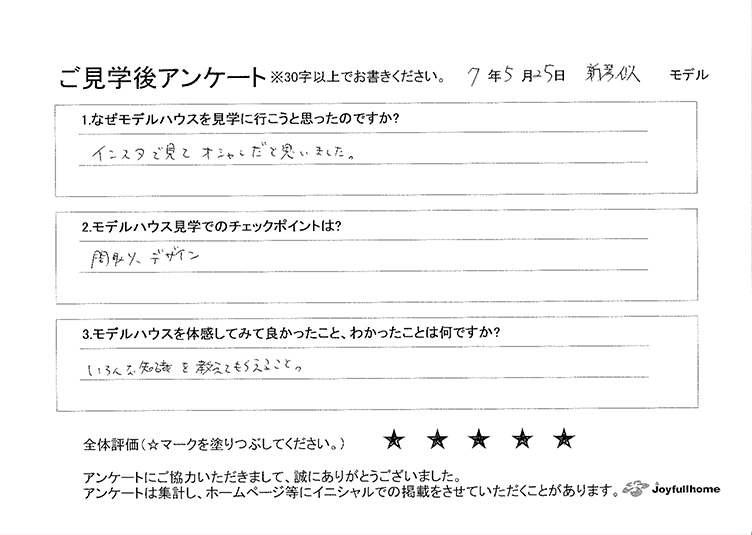 ご見学後アンケート ※30字以上でお書きください。 7年5月25日 モデル
1.なぜモデルハウスを見学に行こうと思ったのですか?
インスタで見て オシャレだと思いました。
2.モデルハウス見学でのチェックポイントは?
間取り、デザイン
3.モデルハウスを体感してみて良かったこと、わかったことは何ですか?
いろんな知識を教えてもらえること。
全体評価(☆マークを塗りつぶしてください。) ★ ★ ★ ★ ★
アンケートにご協力いただきまして、誠にありがとうございました。
アンケートは集計し、ホームページ等にイニシャルでの掲載をさせていただくことがあります。 Joyfullhome